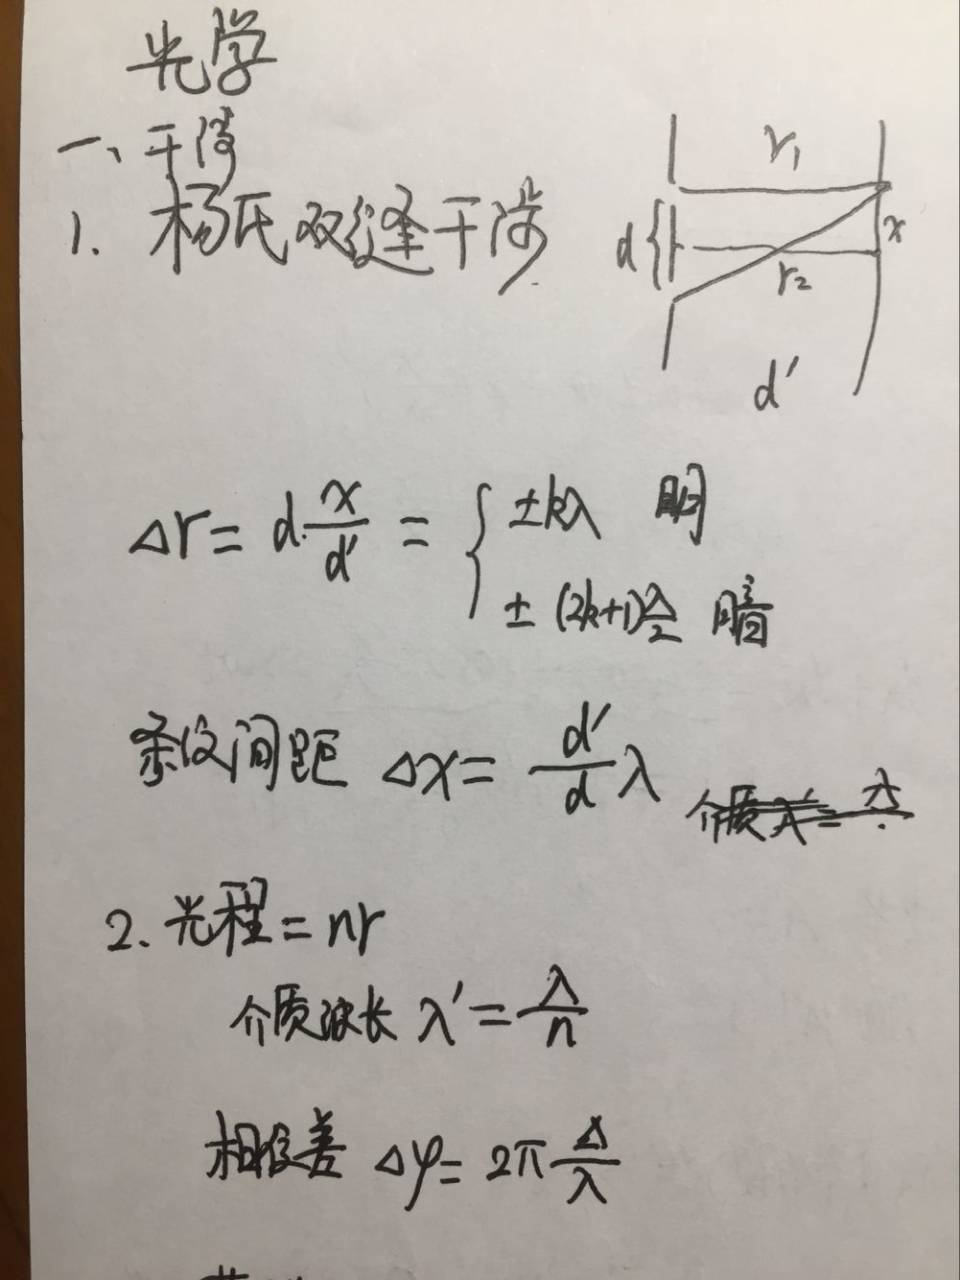 光学
一、干涉
1. 杨氏双缝干涉
r₁
d
x
r₂
d′
Δr = d·x/d′ = { ±kλ 明
±(2k+1)λ/2 暗
条纹间距 Δx = d′/d λ
介质λ′=λ/
2. 光程 = nr
介质波长 λ′ = λ/n
相位差 Δφ = 2π Δ/λ